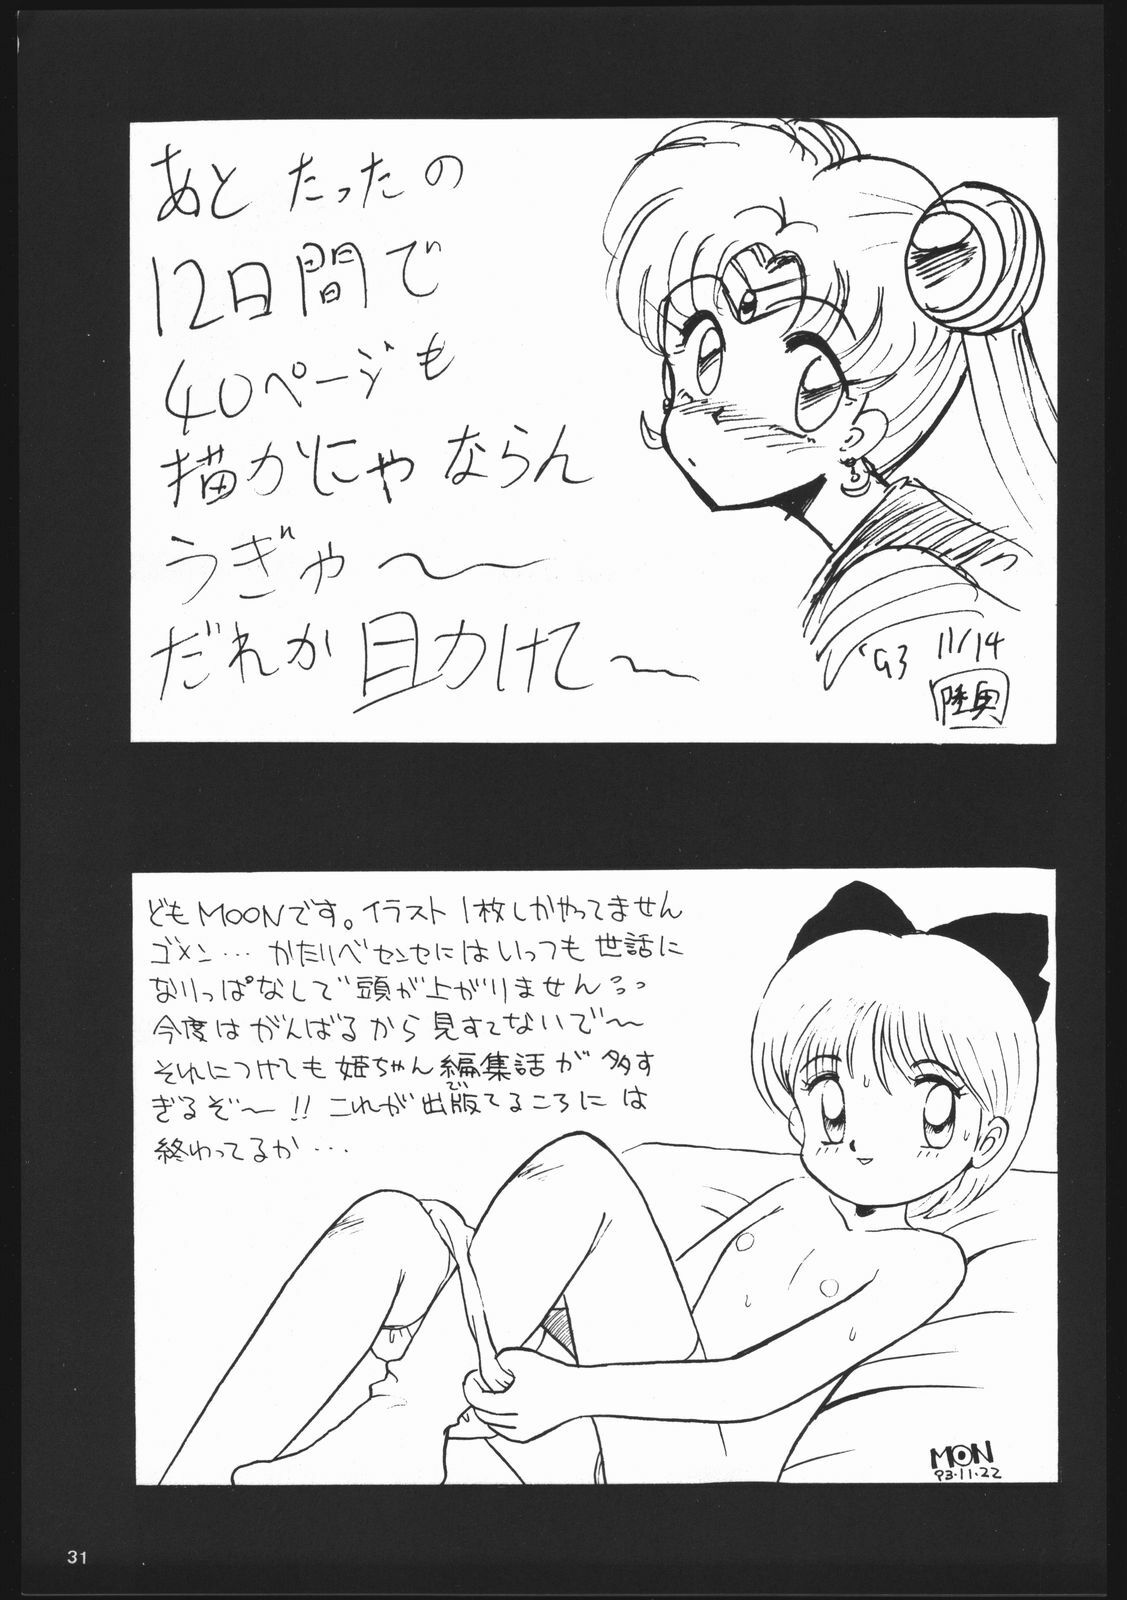 あと たったの
12日間で
40ページも
描かにゃならん
うぎゃ〜
だれか助けて〜
'93 11/14
陸奥
どもMOONです。イラスト1枚しかやってません
ゴメン… かたりべセンセにはいっつも世話に
なりっぱなしで頭が上がりません
今度はがんばるから見すてないで〜
それにつけても姫ちゃん編集話が多す
ぎるぞ〜!! これが出版でてるころには
終わってるか…
MOON
93.11.22
31